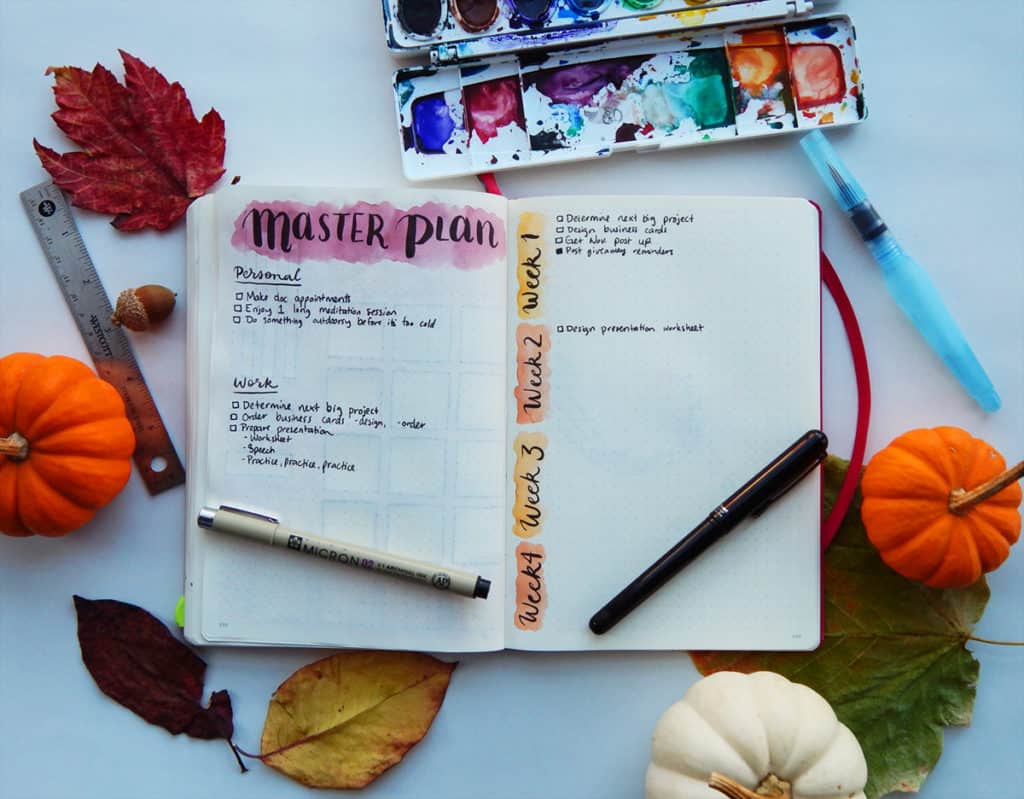 MASTER PLAN
Personal
Make doc appointments
Enjoy 1 long meditation session
Do something outdoorsy before it's too cold
Work
Determine next big project
Order business cards -design, -order
Prepare presentation
- Worksheet
- Speech
- Practice, practice, practice
Week 1
Determine next big project
Design business cards
Get Nov post up
Post giveaway reminders
Week 2
Design presentation worksheet
Week 3
Week 4
MICRON